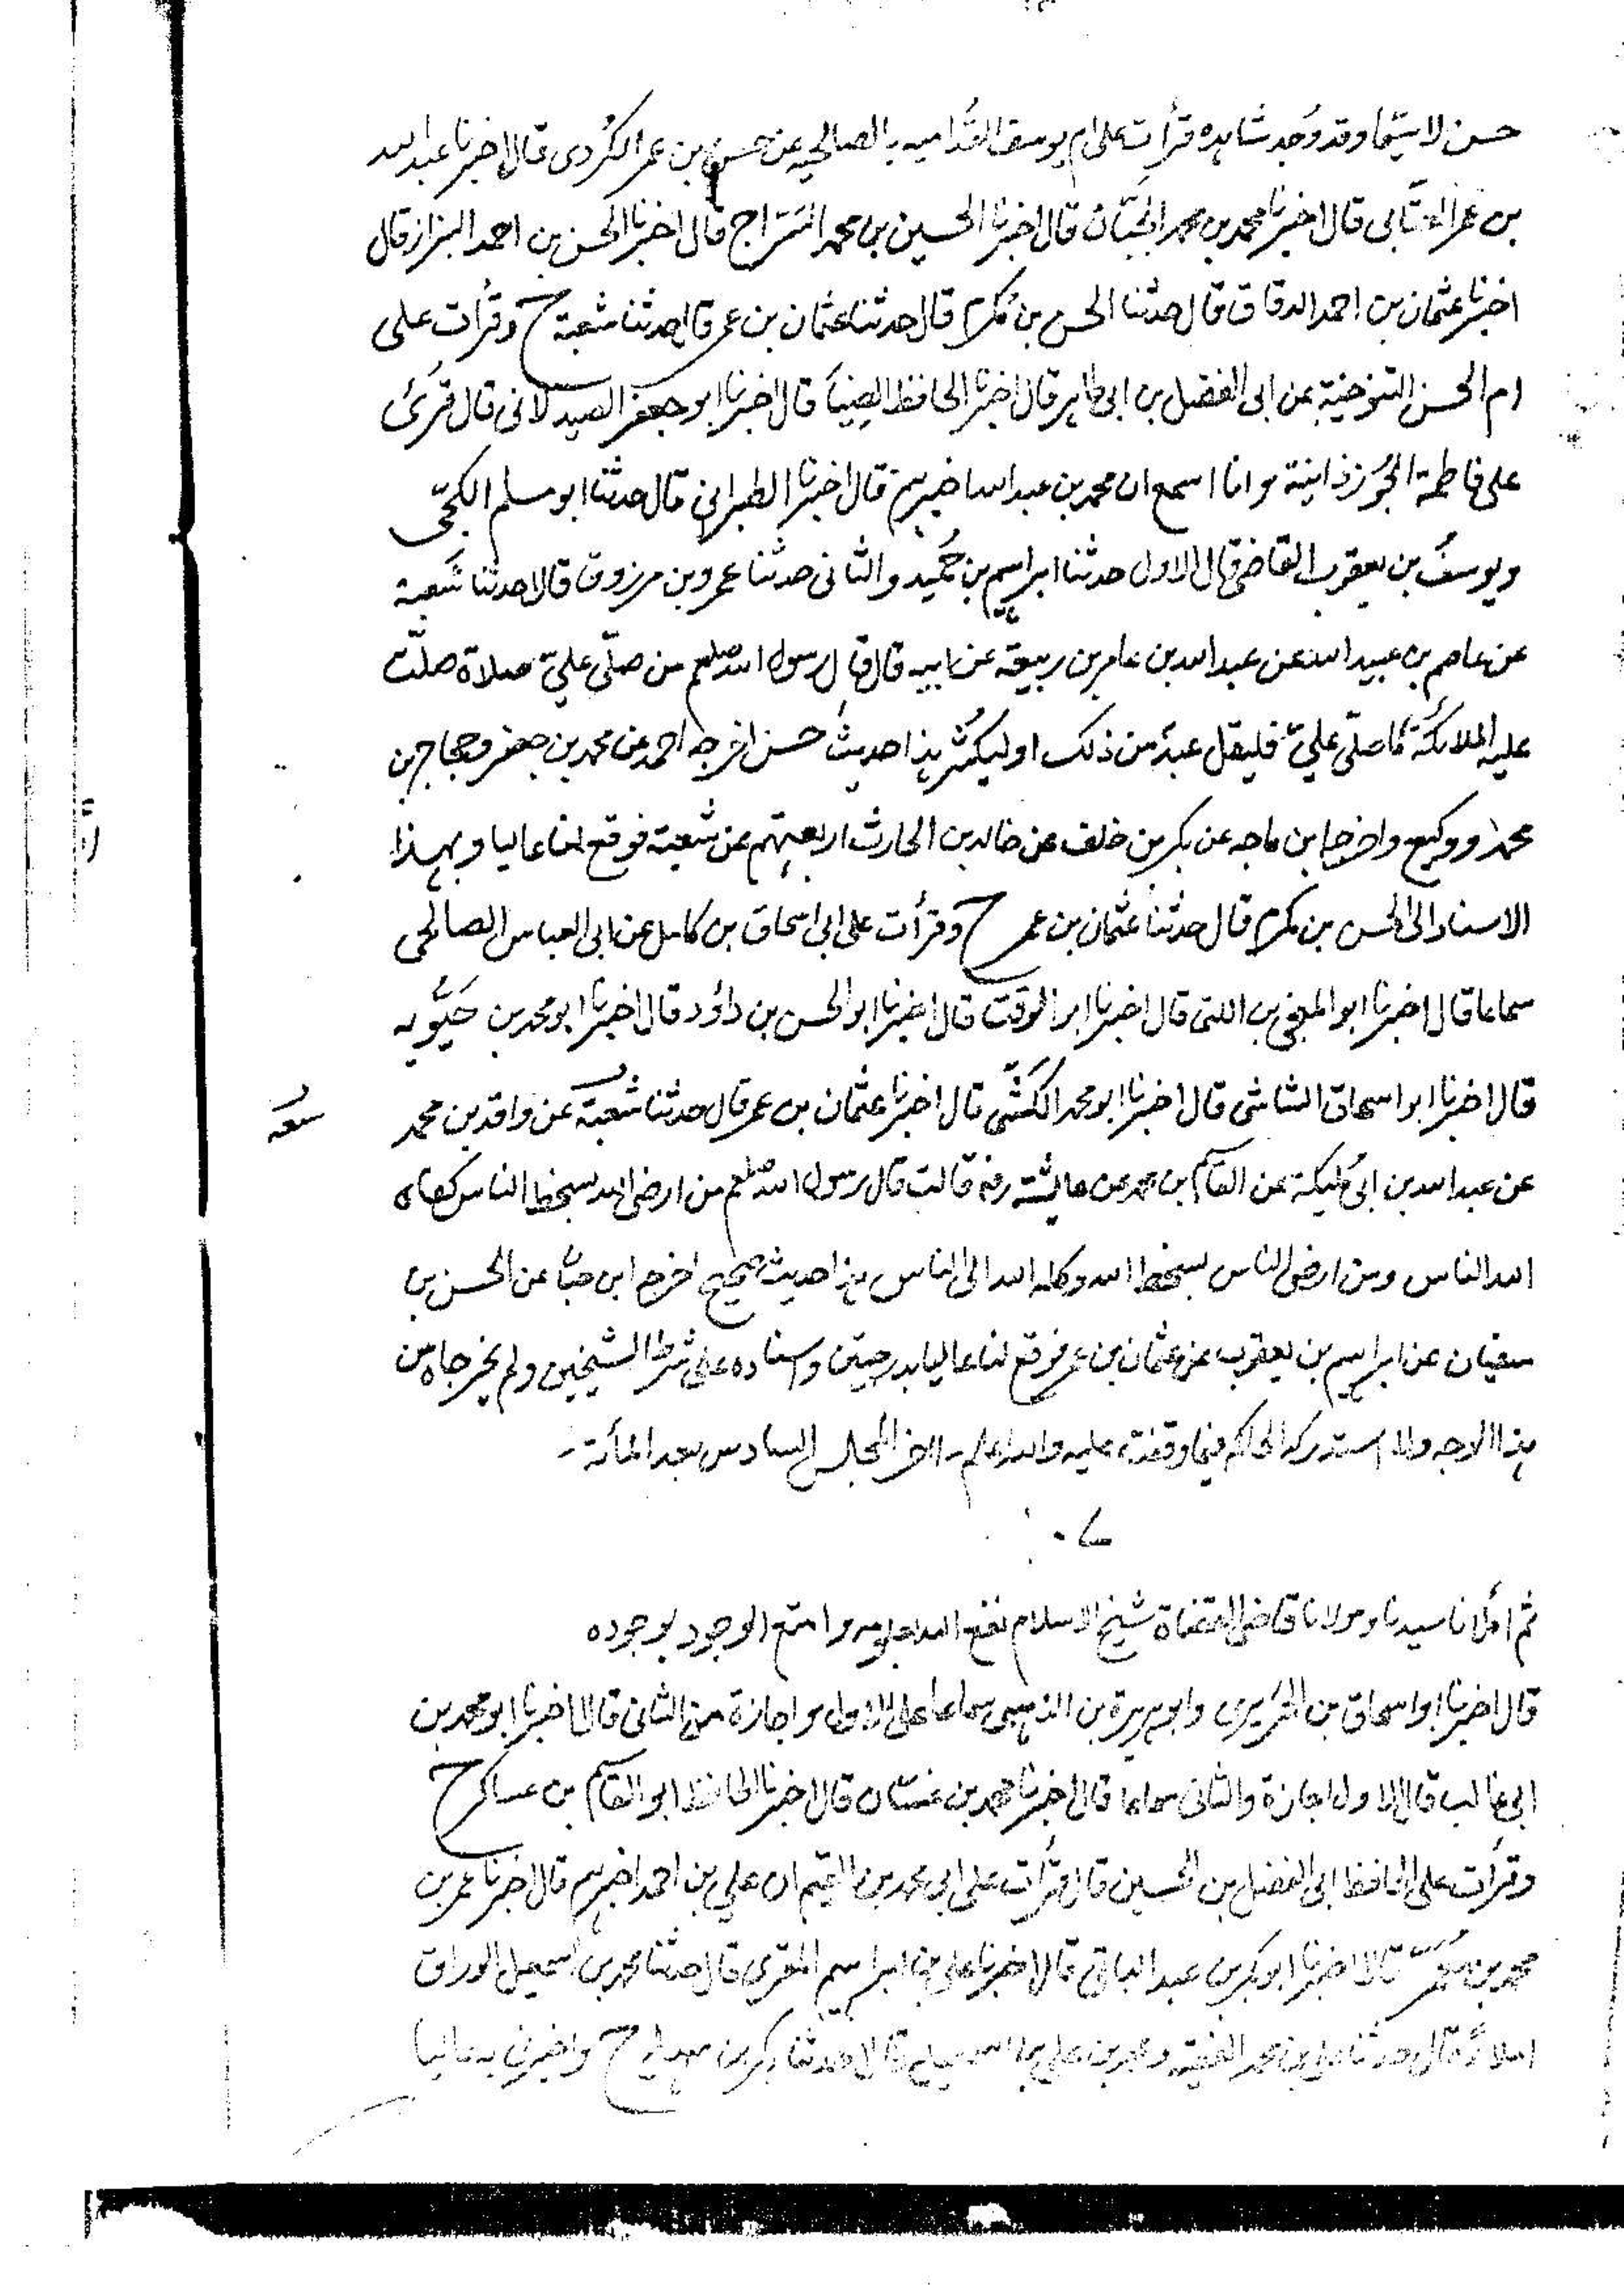 حسن لا سيّما وقد وُجد شاهده قرأت على ام يوسف المقدامية بالصالحية عن حسن بن عمر الكُردى قال اخبرنا عبد الله
بن عمر العتّابى قال اخبرنا محمد بن محمد الجبّان قال اخبرنا الحسين بن محمد السَرّاج قال اخبرنا الحسن بن احمد البزاز قال
اخبرنا عثمان بن احمد الدقاق قال حدثنا الحسن بن مُكرم قال حدثنا عثمان بن عمر قال حدثنا شعبة ح وقرأت على
ام الحسن التنوخية عن ابى الفضل بن ابى طاهر قال اخبرنا الحافظ الضِيَاء قال اخبرنا ابو جعفر الصيدلانى قال قُرئ
على فاطمة الجُوزذانية وانا اسمع ان محمد بن عبد الله اخبرهم قال اخبرنا الطبرانى قال حدثنا ابو مسلم الكجّى
ويوسف بن يعقوب القاضى قال الاول حدثنا ابراهيم بن حُميد والثانى حدثنا عمرو بن مرزوق قالا حدثنا شعبة
عن عاصم بن عبيد الله عن عبد الله بن عامر بن ربيعة عن ابيه قال قال رسول الله صلعم من صلّى عليّ صلاة صلّت
عليه الملائكة ما صلّى عليّ فليقل عبدٌ من ذلك او ليكثُر هذا حديث حسن اخرجه احمد عن محمد بن جعفر وحجاج بن
محمد ووكيع واخرجه ابن ماجه عن بكر بن خلف عن خالد بن الحارث اربعتهم عن شعبة فوقع لنا عاليا وبهذا
الاسناد الى الحسن بن مكرم قال حدثنا عثمان بن عمر ح وقرأت على ابى اسحاق بن كامل عن ابى العباس الصالحى
سماعا قال اخبرنا ابو المنجى بن اللتى قال اخبرنا ابو الوقت قال اخبرنا ابو الحسن بن داؤد قال اخبرنا ابو محمد بن حَيّويه
قال اخبرنا ابو اسحاق الشاشى قال اخبرنا ابو محمد الكَشّى قال اخبرنا عثمان بن عمر قال حدثنا شعبة عن واقد بن محمد
شعبه
عن عبد الله بن ابى مُليكة عن القاسم بن محمد عن عايشة رضه قالت قال رسول الله صلعم من ارضى الله بسخط الناس كفاه
الله الناس ومن ارضى الناس بسخط الله وكله الله الى الناس هذا حديث صحيح اخرجه ابن حبان عن الحسن بن
سفيان عن ابراهيم بن يعقوب عن عثمان بن عمر فوقع لنا عاليا بدرجتين واسناده على شرط الشيخين ولم يخرجاه من
هذا الوجه ولا استدركه الحاكم فيما وقفت عليه والله اعلم - اخر المجلس السادس بعد المأئة -
ثم املانا سيدنا ومولانا قاضى القضاة شيخ الاسلام نفع الله بعلومه وامتع الوجود بوجوده
قال اخبرنا ابو اسحاق بن الحَريرى وابو هريرة بن الذهبى سماعا على الاول واجازة من الثانى قالا اخبرنا ابو محمد بن
ابى غالب قال الاول اجازة والثانى سماعا قال اخبرنا محمد بن غسّان قال اخبرنا الحافظ ابو القاسم بن عساكر ح
وقرأت على الحافظ ابى الفضل بن الحسين قال قرأت على ابى محمد بن القيّم ان علي بن احمد اخبرهم قال اخبرنا عمر بن
محمد بن مُعَمّر قالا اخبرنا ابو بكر بن عبد الباقى قال اخبرنا على بن ابراهيم المقرى قال حدثنا محمد بن اسمعيل الوراق
املاءً قال حدثنا على بن محمد الفقيه ومحمد بن على بن اسمعيل قالا حدثنا بكر بن سهل ح واخبرنى به عاليا